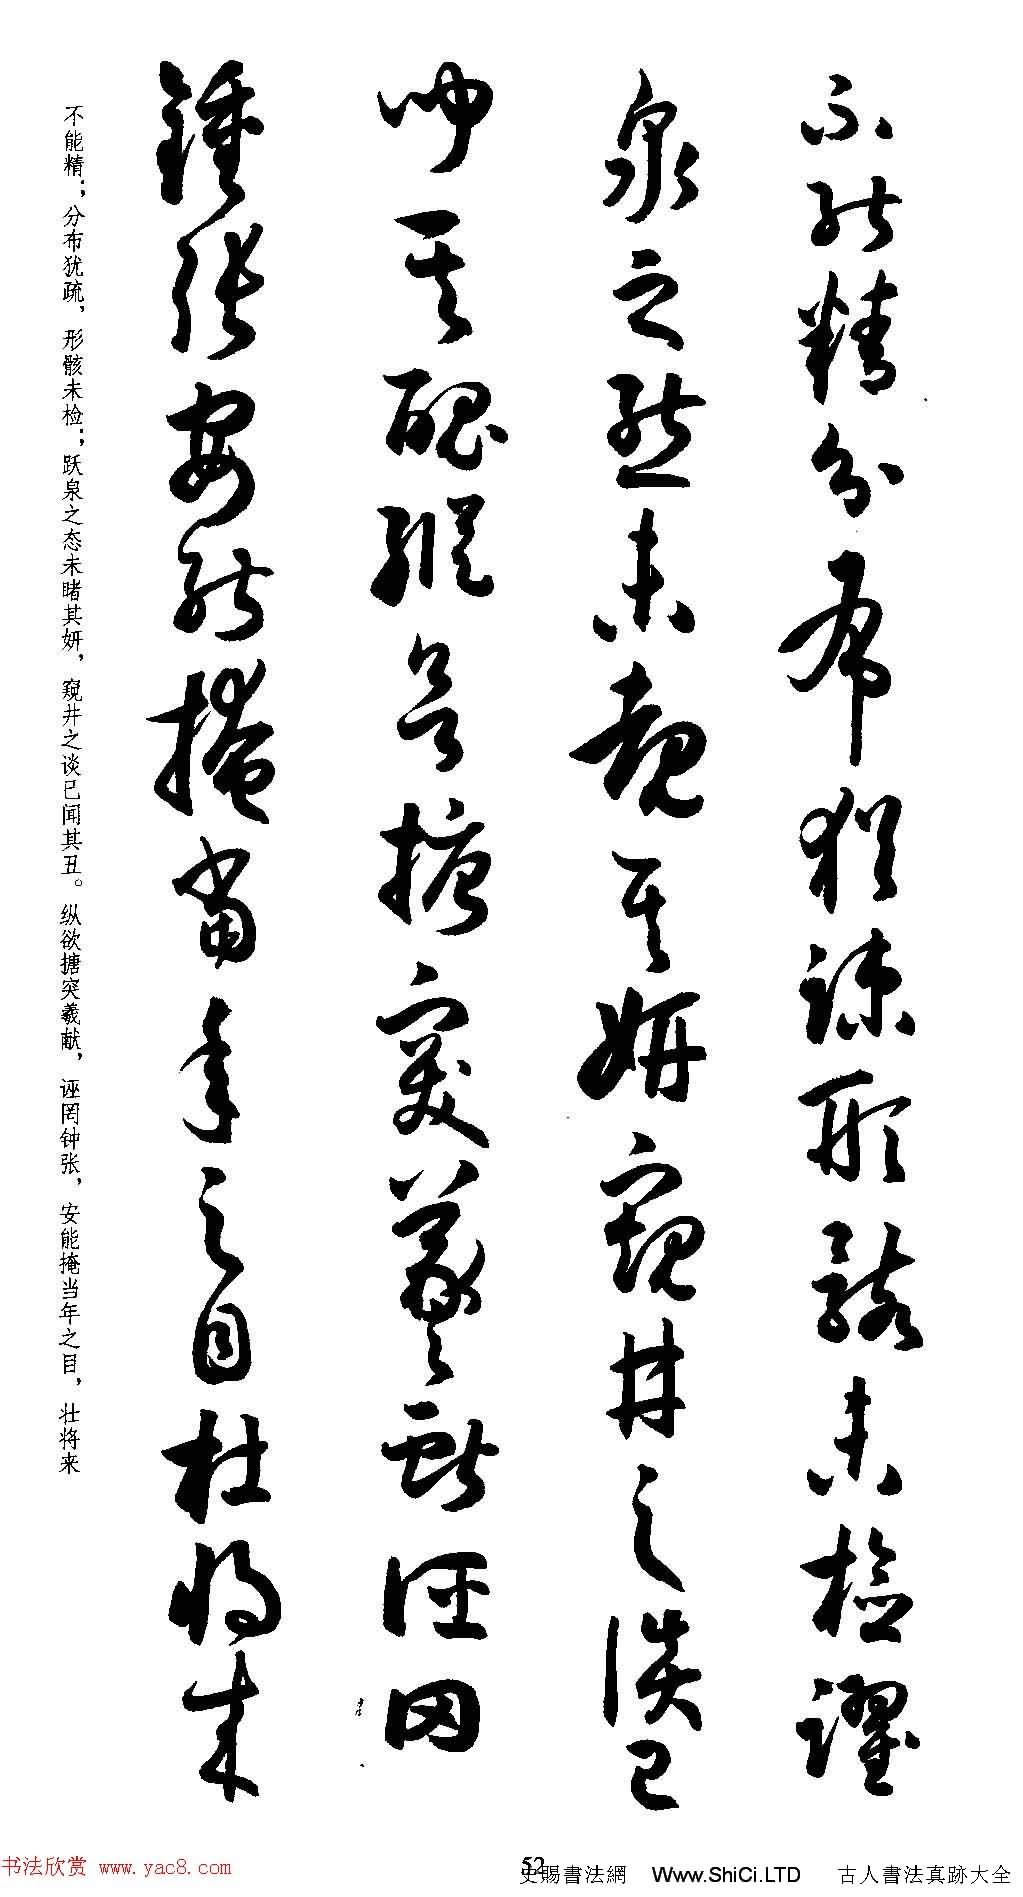 不能精分布犹疎形骸未檢躍
泉之態未覩其妍窺井之談已
聞其醜縱欲搪突羲獻誣罔
鍾張安能掩當年之目杜將來
不能精；分布犹疏，形骸未检；跃泉之态未睹其妍，窥井之谈已闻其丑。纵欲搪突羲献，诬罔钟张，安能掩当年之目，壮将来
52
书法欣赏 www.yac8.com
史賜書法網 Www.ShiCi.LTD 古人書法真跡大全